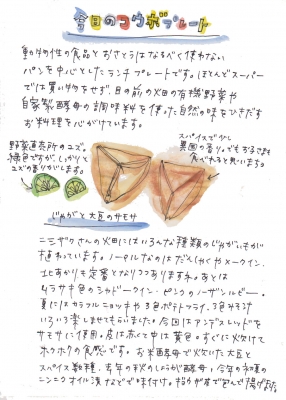 今日のコウボプレート
動物性の食品とおさとうはなるべく使わない
パンを中心としたランチプレートです。ほとんどスーパー
では買い物をせず、目の前の畑の有機野菜や
自家製酵母の調味料を使った自然の味をひきだす
お料理を心がけています。
野菜直売所のユズ。
緑色ですが、しっかりと
ユズの香りがします。
スパイスで少し
異国の香り。
食べれると思います。
じゃがと大豆のサモサ
ニシザワさんの畑にはいろんな種類のじゃがいもが
植わっています。ノーマルなのはだんしゃくやメークイン、
北あかりも定番となりつつありますね。あとは
ムラサキ色のシャドークイーン、ピンクのノーザンルビー。
夏にはカラフルニョッキや3色ポテトフライ、3色みそ汁
いろいろ楽しませてもらいました。今回はアンデスレッドを
サモサに使用。皮は赤くて中は黄色。すぐに火が通って
ホクホクの食感です。お米酵母で火欠いた大豆と
スパイス数種、去年の秋のしょうが酵母、今年の初夏の
ニンニクオイル漬などで味付け。粕がすで包んで揚げ